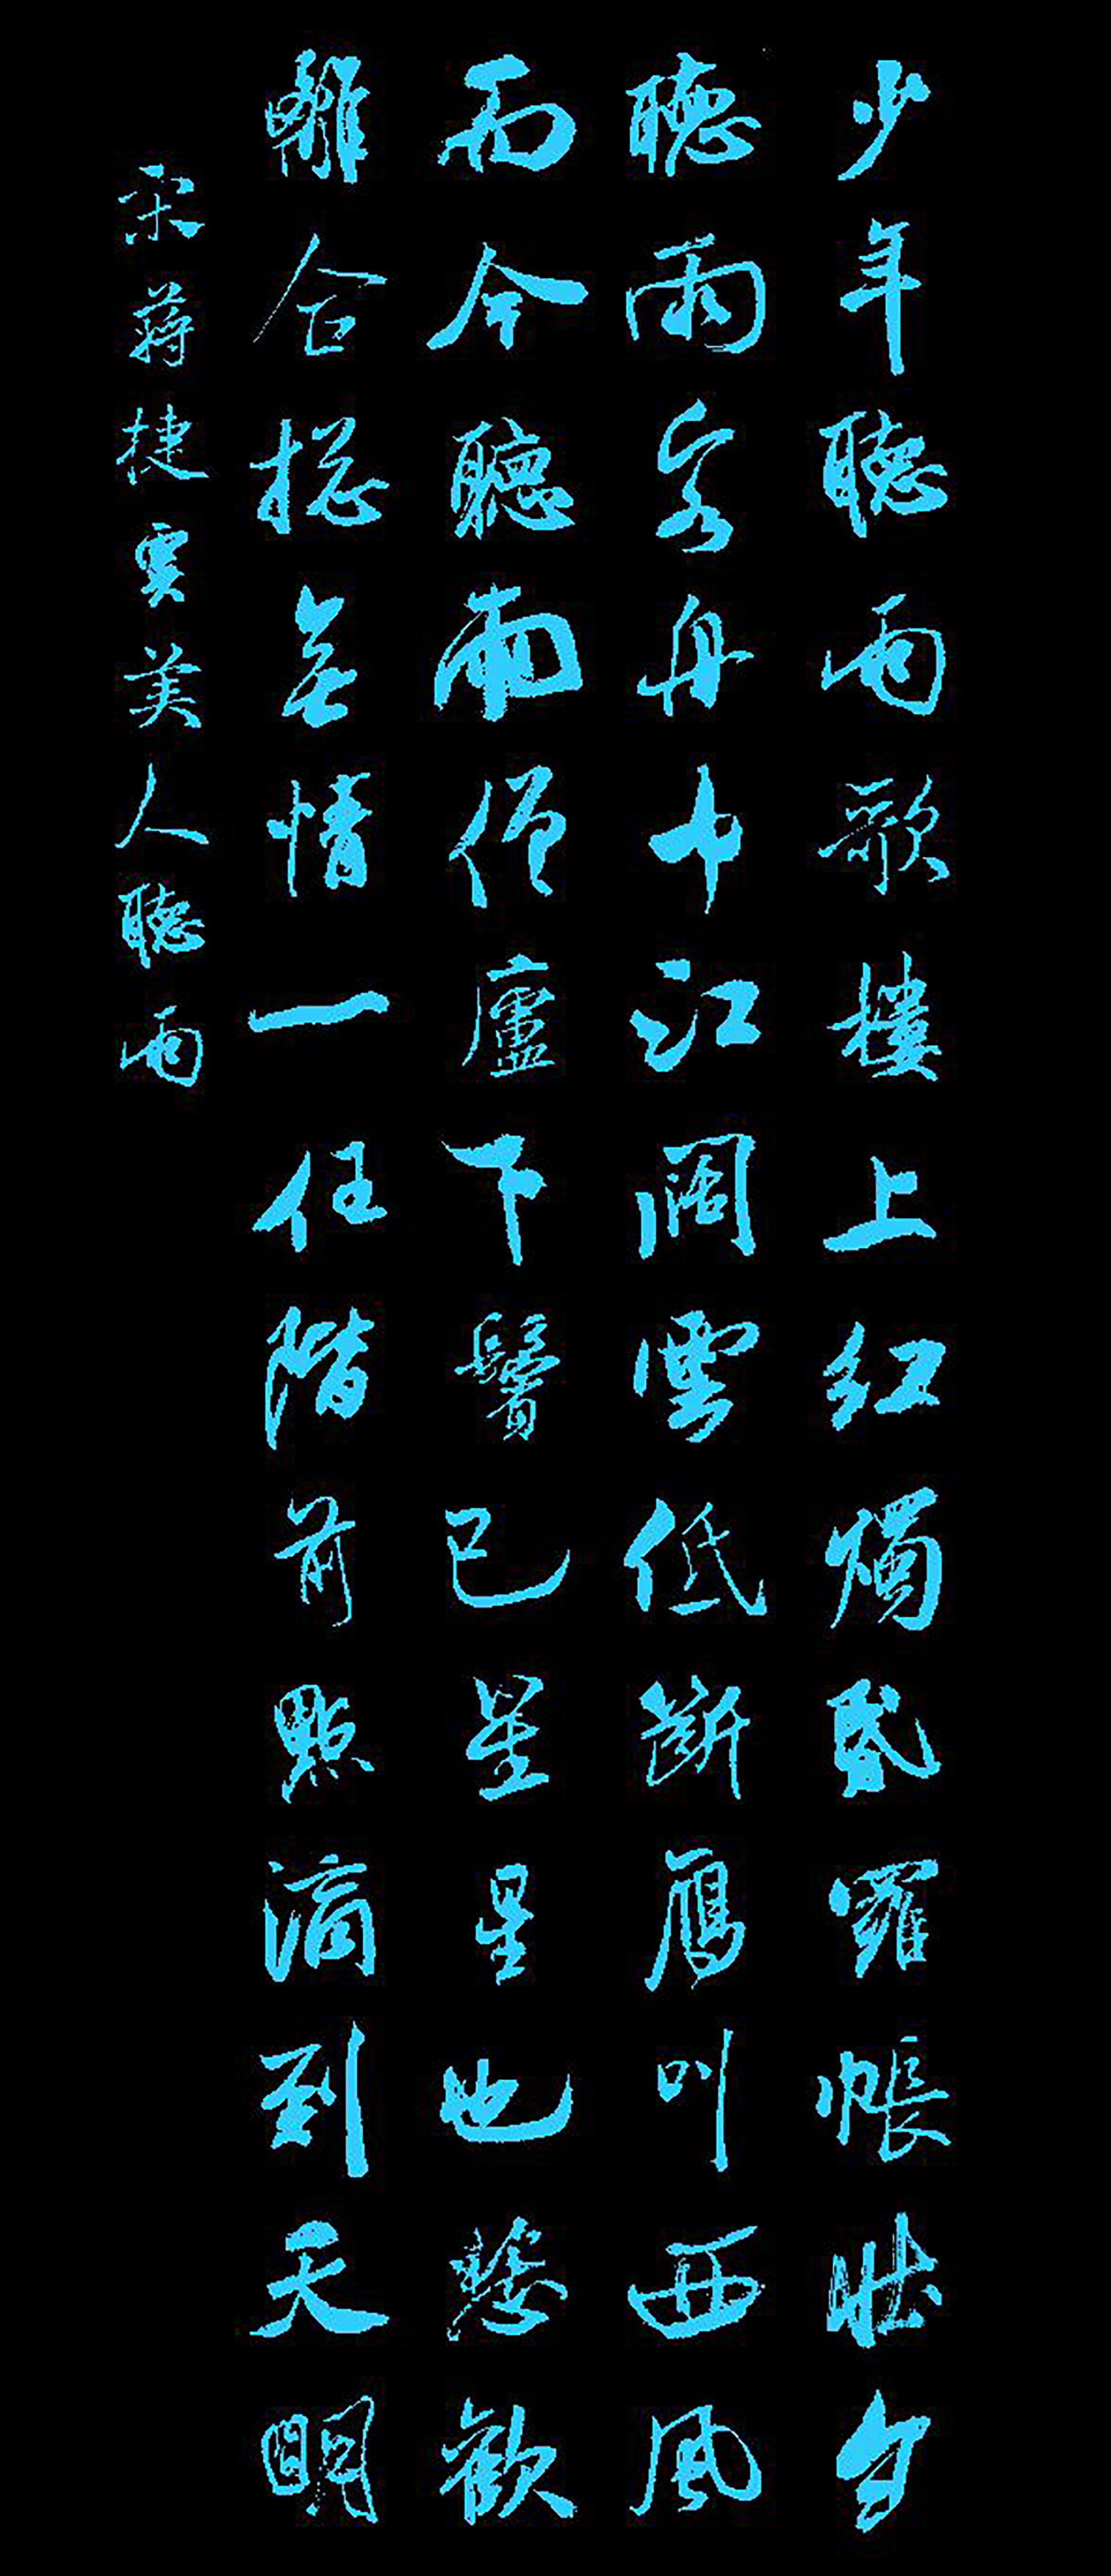 少年聽雨歌樓上紅燭昏羅帳壯年
聽雨客舟中江闊雲低斷鴈叫西風
而今聽雨僧廬下鬢已星星也悲歡
離合總無情一任階前點滴到天明
宋蔣捷虞美人聽雨